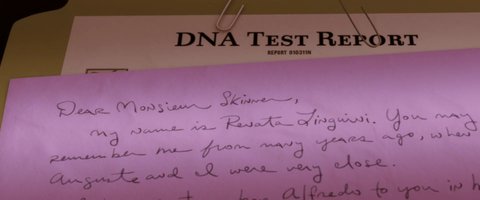 DNA TEST REPORT
REPORT 010311N
Dear Monsieur Skinner,
My name is Renata Linguini. You may
remember me from many years ago, when
Auguste and I were very close.
Alfredo to you in